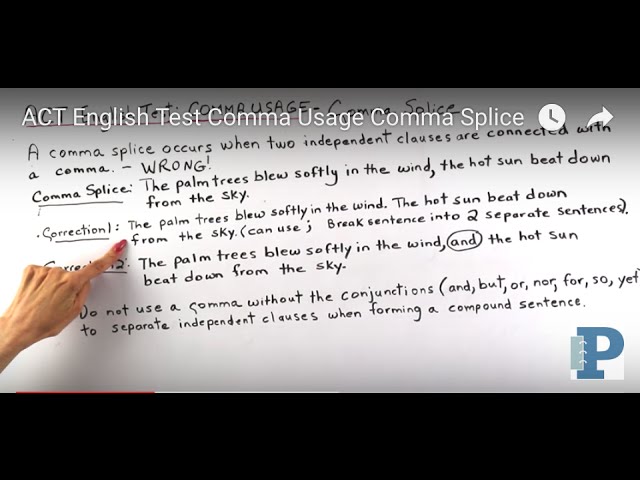 ACT English Test: COMMA USAGE - Comma Splice
ACT English Test Comma Usage Comma Splice
A comma splice occurs when two independent clauses are connected with
a comma. - WRONG!
Comma Splice: The palm trees blew softly in the wind, the hot sun beat down
from the sky.
Correction1: The palm trees blew softly in the wind. The hot sun beat down
from the sky. (can use ; Break sentence into 2 separate sentences).
The palm trees blew softly in the wind, and the hot sun
beat down from the sky.
Do not use a comma without the conjunctions (and, but, or, nor, for, so, yet
to separate independent clauses when forming a compound sentence.
P